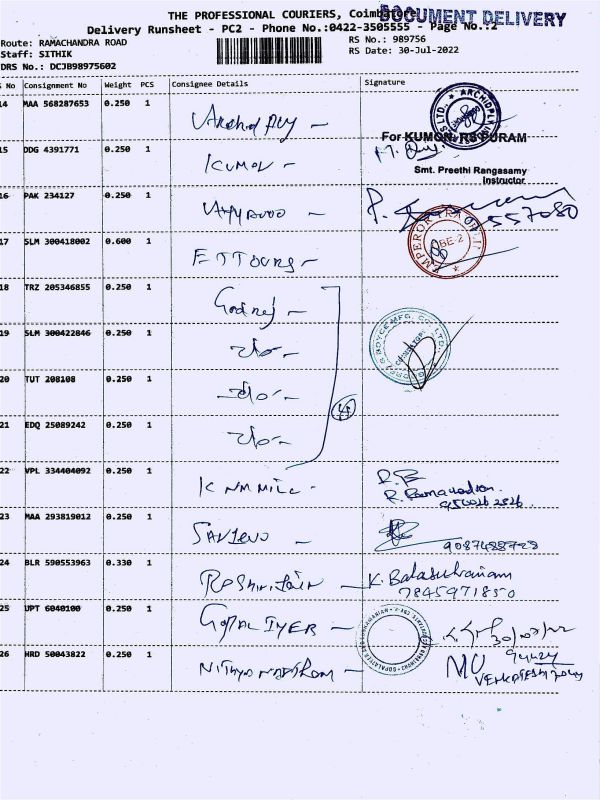 THE PROFESSIONAL COURIERS, Coimbatore
DOCUMENT DELIVERY
Delivery Runsheet - PC2 - Phone No.:0422-3505555 - Page No.:2
Route: RAMACHANDRA ROAD
RS No.: 989756
Staff: SITHIK
RS Date: 30-Jul-2022
DRS No.: DCJB98975602
S No Consignment No Weight PCS Consignee Details Signature
14 MAA 568287653 0.250 1
For KUMON- RS PURAM
15 DDG 4391771 0.250 1 KUMON
Smt. Preethi Rangasamy
Instructor
16 PAK 234127 0.250 1
557080
17 SLM 300418002 0.600 1 ETTOURS
BE-2
18 TRZ 205346855 0.250 1 Godrej
19 SLM 300422846 0.250 1 -do-
20 TUT 208108 0.250 1 -do-
21 EDQ 25089242 0.250 1 -do-
22 VPL 334404092 0.250 1 K N M MILL
23 MAA 293819012 0.250 1
9087488728
24 BLR 590553963 0.330 1 Roshni Jain K. Balasubramaniam
7845971850
25 UPT 6040100 0.250 1 GOPAL IYER
26 HRD 50043822 0.250 1